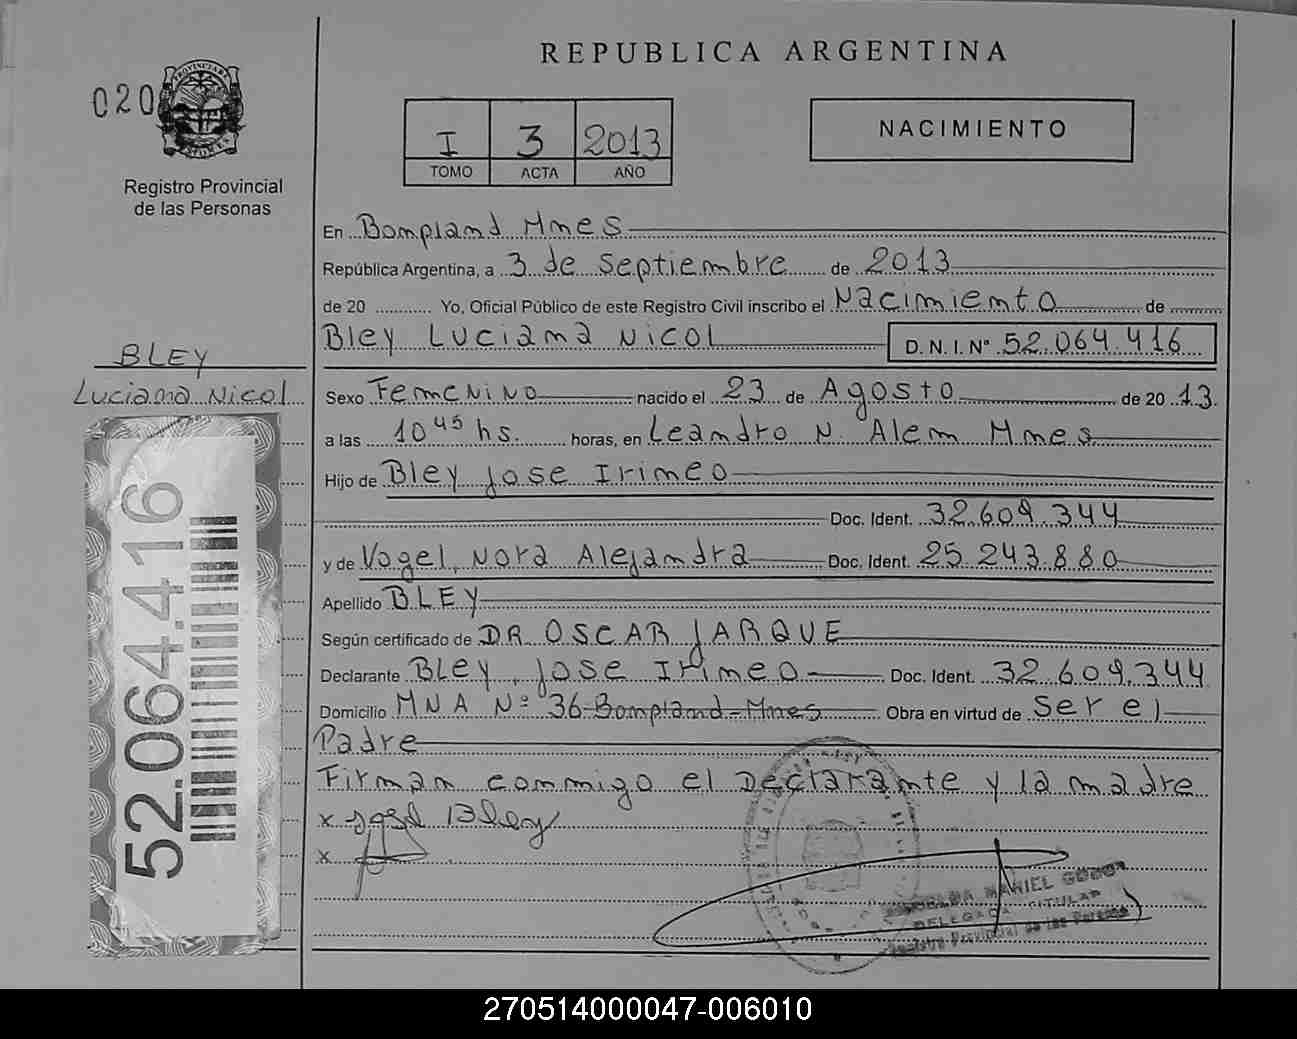 REPUBLICA ARGENTINA
020
PROVINCIA DE MISIONES
Registro Provincial
de las Personas
I 3 2013
TOMO ACTA AÑO
NACIMIENTO
En Bompland Mnes
República Argentina, a 3 de Septiembre de 2013
de 20 Yo, Oficial Público de este Registro Civil inscribo el Nacimiento de
Bley Luciana Nicol D. N. I. N° 52.064.416
BLEY
Luciana Nicol
52.064.416
Sexo Femenino nacido el 23 de Agosto de 20 13.
a las 10 45 hs. horas, en Leandro N. Alem Mnes
Hijo de Bley Jose Irineo
Doc. Ident. 32.609.344
y de Vogel, Nora Alejandra Doc. Ident. 25.243.880
Apellido BLEY
Según certificado de DR OSCAR JARQUE
Declarante Bley, Jose Irineo Doc. Ident. 32.609.344
Domicilio MNA Nº 36-Bompland-Mnes Obra en virtud de Ser el
Padre
Firman conmigo el Declarante y la madre
x José Bley
x
MARIEL
DELEGADA TITULAR
Registro Provincial de las Personas
270514000047-006010